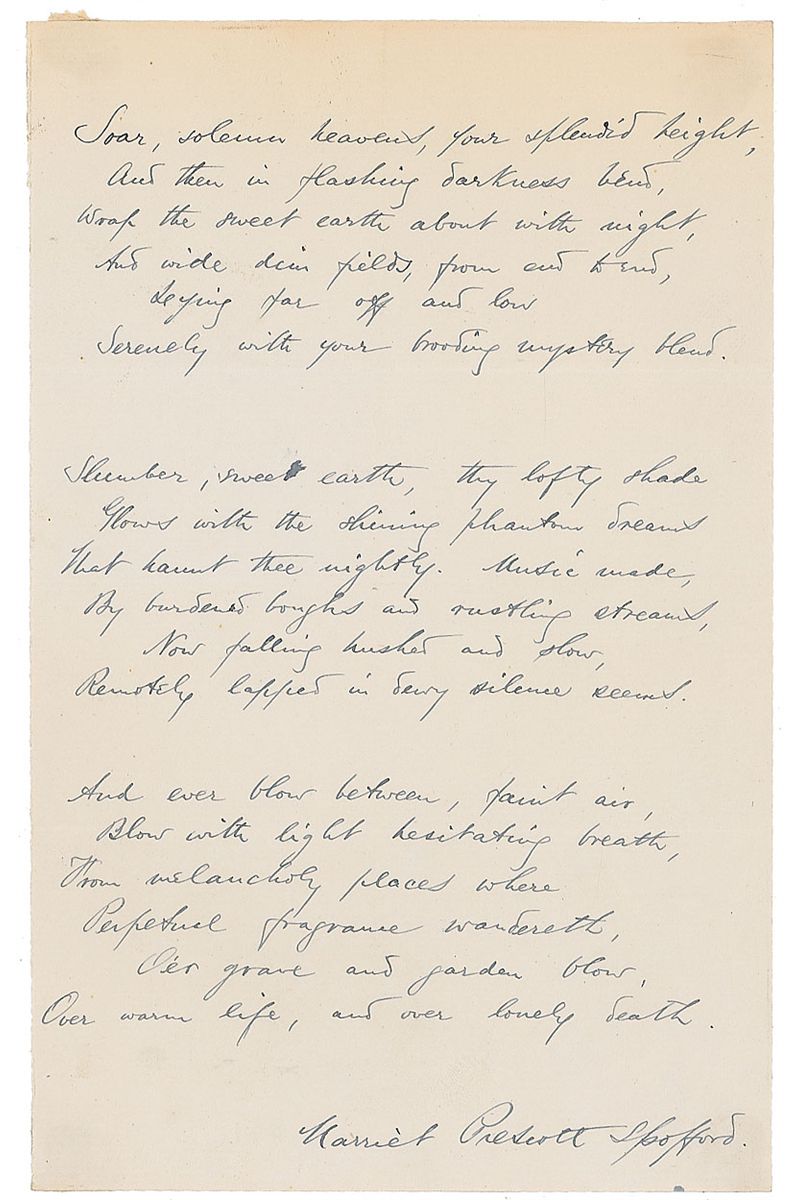 Soar, solemn heavens, your splendid height,
And then in flashing darkness bend,
Wrap the sweet earth about with night,
And wide dim fields, from end to end,
Lying far off and low
Serenely with your brooding mystery blend.
Slumber, sweet earth, thy lofty shade
Glows with the shining phantom dreams
That haunt thee nightly. Music made,
By burdened boughs and rustling streams,
Now falling hushed and slow,
Remotely lapped in dewy silence seems.
And ever blow between, faint air,
Blow with light hesitating breath,
From melancholy places where
Perpetual fragrance wandereth,
O'er grave and garden blow,
Over warm life, and over lonely death.
Harriet Prescott Spofford.